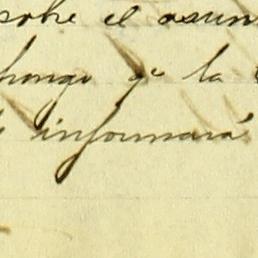 sobre el asun
pongo qe la
informará